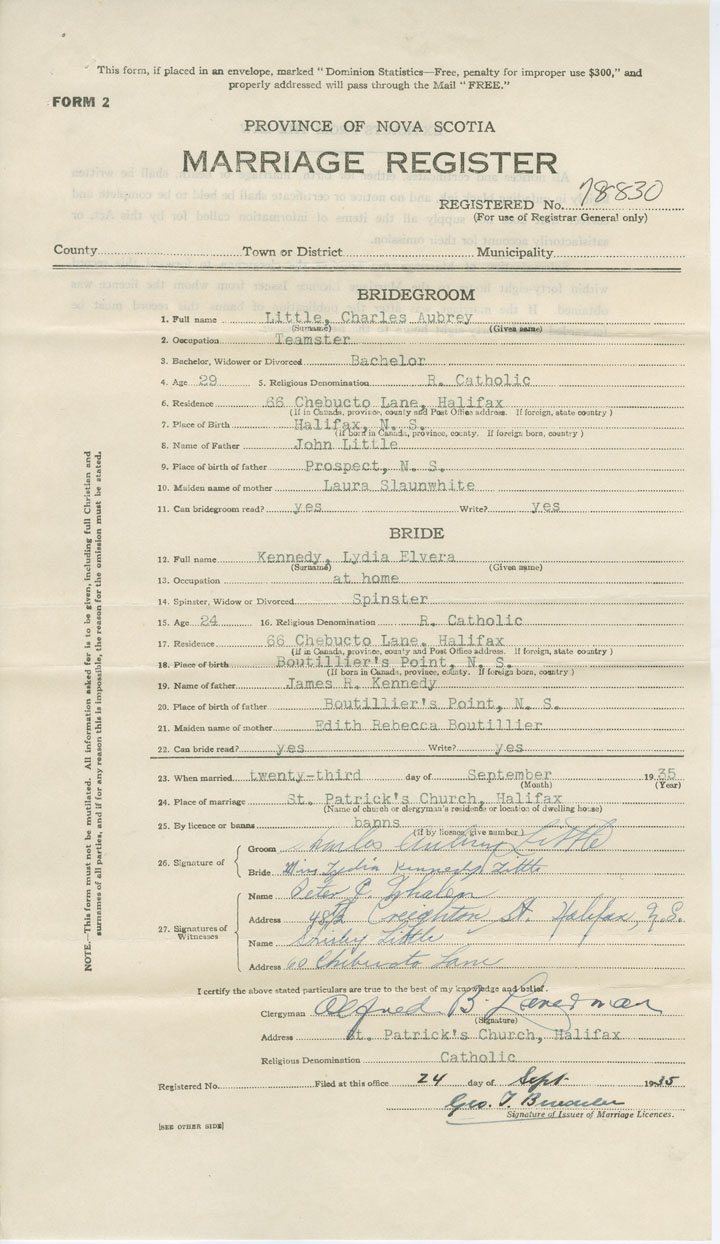 This form, if placed in an envelope, marked "Dominion Statistics—Free, penalty for improper use $300," and
properly addressed will pass through the Mail "FREE."
FORM 2
PROVINCE OF NOVA SCOTIA
MARRIAGE REGISTER
REGISTERED No. 78830
(For use of Registrar General only)
County Town or District Municipality
BRIDEGROOM
1. Full name Little, Charles Aubrey
(Surname) (Given name)
2. Occupation Teamster
3. Bachelor, Widower or Divorced Bachelor
4. Age 29 5. Religious Denomination R. Catholic
6. Residence 66 Chebucto Lane, Halifax
(If in Canada, province, county and Post Office address. If foreign, state country)
7. Place of Birth Halifax, N. S.
(If born in Canada, province, county. If foreign born, country)
8. Name of Father John Little
9. Place of birth of father Prospect, N. S.
10. Maiden name of mother Laura Slaunwhite
11. Can bridegroom read? yes Write? yes
BRIDE
12. Full name Kennedy, Lydia Elvera
(Surname) (Given name)
13. Occupation at home
14. Spinster, Widow or Divorced Spinster
15. Age 24 16. Religious Denomination R. Catholic
17. Residence 66 Chebucto Lane, Halifax
(If in Canada, province, county and Post Office address. If foreign, state country)
18. Place of birth Boutillier's Point, N. S.
(If born in Canada, province, county. If foreign born, country)
19. Name of father James R. Kennedy
20. Place of birth of father Boutillier's Point, N. S.
21. Maiden name of mother Edith Rebecca Boutillier
22. Can bride read? yes Write? yes
23. When married twenty-third day of September 1935
(Month) (Year)
24. Place of marriage St. Patrick's Church, Halifax
(Name of church or clergyman's residence or location of dwelling house)
25. By licence or banns banns
(if by licence, give number)
26. Signature of
Groom Charles Aubrey Little
Bride Miss Lydia Kennedy Little
27. Signatures of
Witnesses
Name Peter J. Whalen
Address 48½ Creighton St. Halifax, N.S.
Name Shirley Little
Address 60 Chebucto Lane
NOTE.—This form must not be mutilated. All information asked for is to be given, including full Christian and
surnames of all parties, and if for any reason this is impossible, the reason for the omission must be stated.
I certify the above stated particulars are true to the best of my knowledge and belief.
Clergyman Alfred B.
(Signature)
Address St. Patrick's Church, Halifax
Religious Denomination Catholic
Registered No. Filed at this office 24 day of Sept. 1935
Geo. T.
Signature of Issuer of Marriage Licences.
[SEE OTHER SIDE]